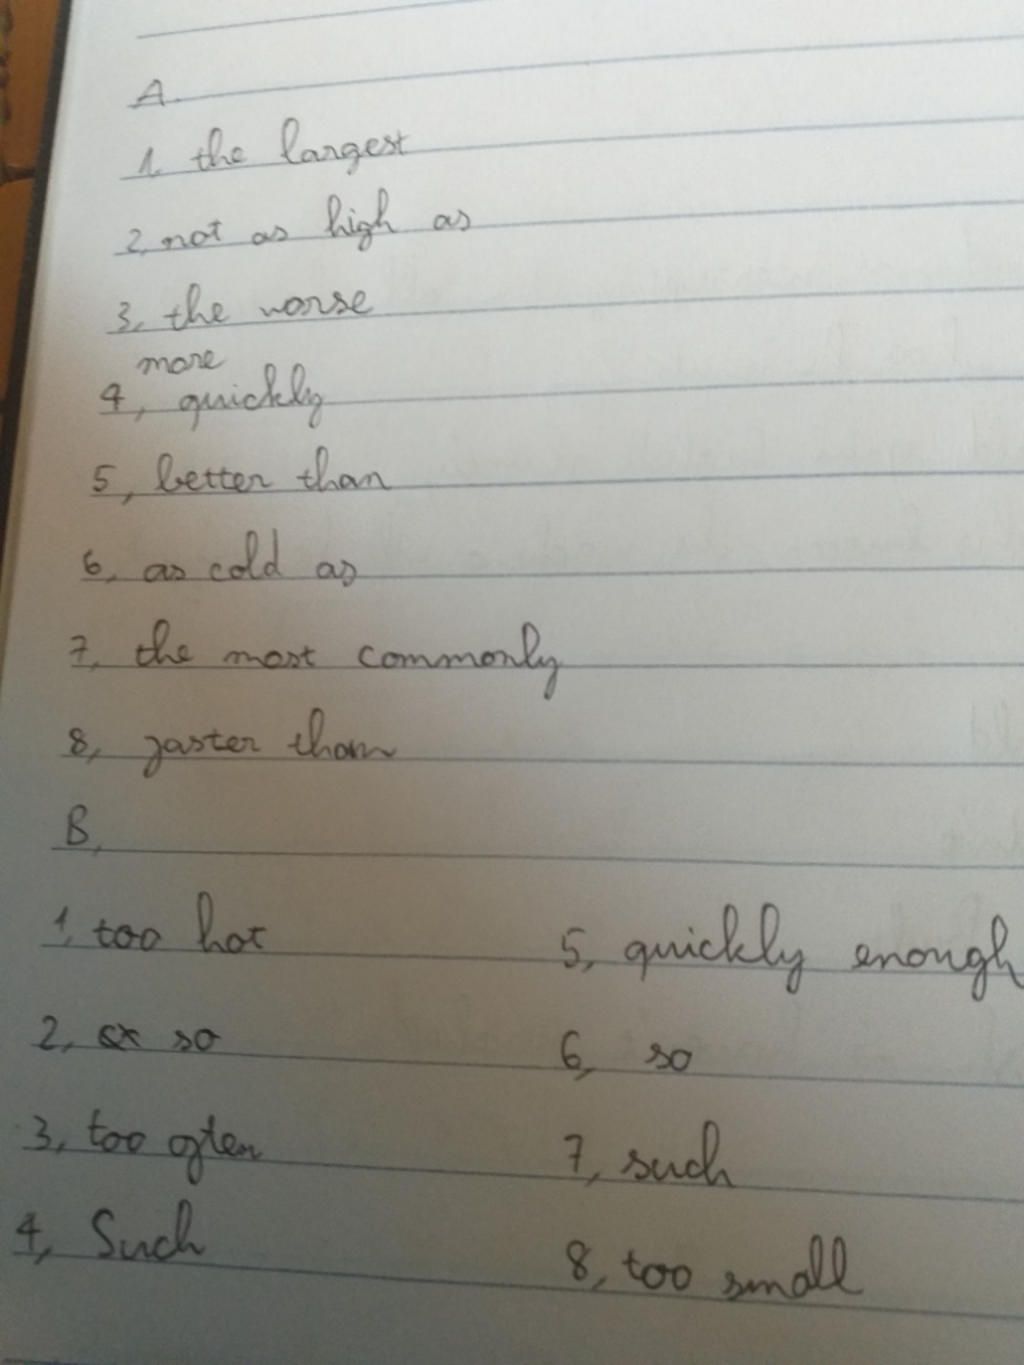 A.
1, the largest
2, not as high as
3, the worse
more
4, quickly
5, better than
6, as cold as
7, the most commonly
8, faster than
B,
1, too hot
2, so
3, too often
4, Such
5, quickly enough
6, so
7, such
8, too small